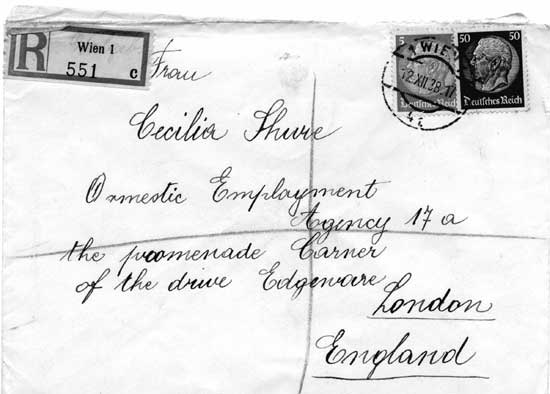 R
Wien 1
551 c
5
50 50
Deutsches Reich
Deutsches Reich
1 WIEN
12.XII.38.17
Frau
Cecilia Shure
Ormestic Employment
Agency 17 a
the promenade Carner
of the drive Edgeware
London
England